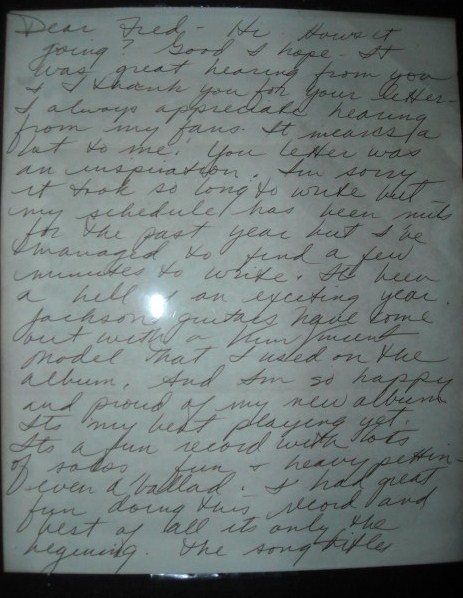 Dear Fred - Hi Hows it
going? Good I hope - It
was great hearing from you
& I thank you for your letter -
I always appreciate hearing
from my fans. It means a
lot to me! You letter was
an inspiration. Im sorry
it took so long to write but
my schedule has been nuts
for the past year but I've
managed to find a few
minutes to write. Its been
a hell of an exciting year.
Jackson guitars have come
out with a Vinnie Vincent
model that I used on the
album. And Im so happy
and proud of my new album
Its my best playing yet.
Its a fun record with lots
of solos fun & heavy pettin -
even a ballad. I had great
fun doing this record and
best of all its only the
begining. The song titles